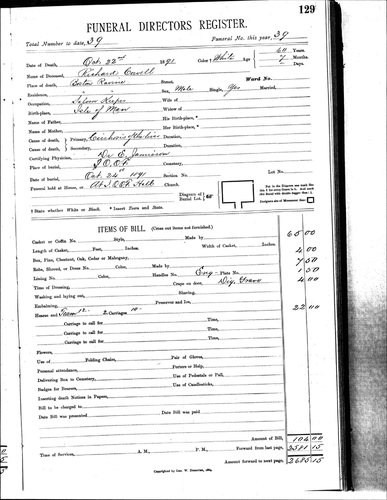 129
FUNERAL DIRECTORS REGISTER.
Total Number to date, 39 Funeral No. this year, 39
Date of Death, Oct. 22nd 1891 Color † White Age 60 Years.
Name of Deceased, Richard 7 Months.
Place of death, Ravine Street, Ward No. Days.
Residence, Sex, Male Single, Yes Married,
Occupation, Saloon Keeper Wife of
Birth-place, Isle of Man Widow of
Name of Father, His Birth-place, *
Name of Mother, Her Birth-place, *
Cause of death, Primary, Cirrhosis of the liver Duration,
Cause of death, Secondary, Duration,
Certifying Physician, Dr E. Jamieson
Place of burial, I.O.O.F. Cemetery,
Date of burial, Oct. 24th 1891 Section No.
Funeral held at House, or At I.O.O.F. Hall Church.
Diagram of Burial Lot.
† State whether White or Black. * Insert Town and State.
ITEMS OF BILL. (Cross out items not furnished.)
Casket or Coffin No. Style, 65 00
Length of Casket, Feet, Inches. Width of Casket, Inches. 4 00
Box, Pine, Chestnut, Oak, Cedar or Mahogany, Made by 7 50
Robe, Shroud, or Dress No. Color, Eng. Plate No. 1 50
Lining No. Color, Handles No. Dig. Grave 4 00
Time of Dressing, Crape on door,
Washing and laying out, Shaving,
Embalming, Preserver and Ice,
Hearse and Team 12.- 2 Carriages 10.- 22 00
Carriage to call for Time,
Carriage to call for Time,
Carriage to call for Time,
Carriage to call for Time,
Flowers,
Use of Folding Chairs, Pair of Gloves,
Personal attendance, Porters or Help,
Delivering Box to Cemetery, Use of Pedestals or Pall,
Badges for Bearers, Use of Candlesticks,
Inserting death Notices in Papers,
Bill to be charged to
Date Bill was presented Date Bill was paid
Amount of Bill, 104 00
Time of Services, A. M., P. M., Forward from last page, 2581 15
Amount forward to next page, 2685 15